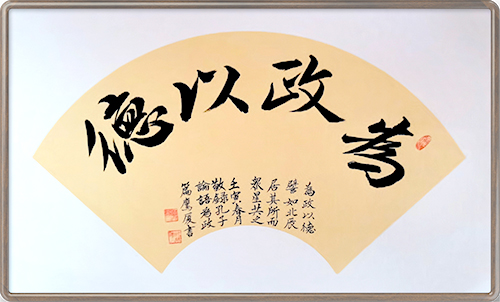 為政以德
為政以德
譬如北辰
居其所而
衆星共之
壬寅春月
敬録孔子
論語為政
篇鷹厦書